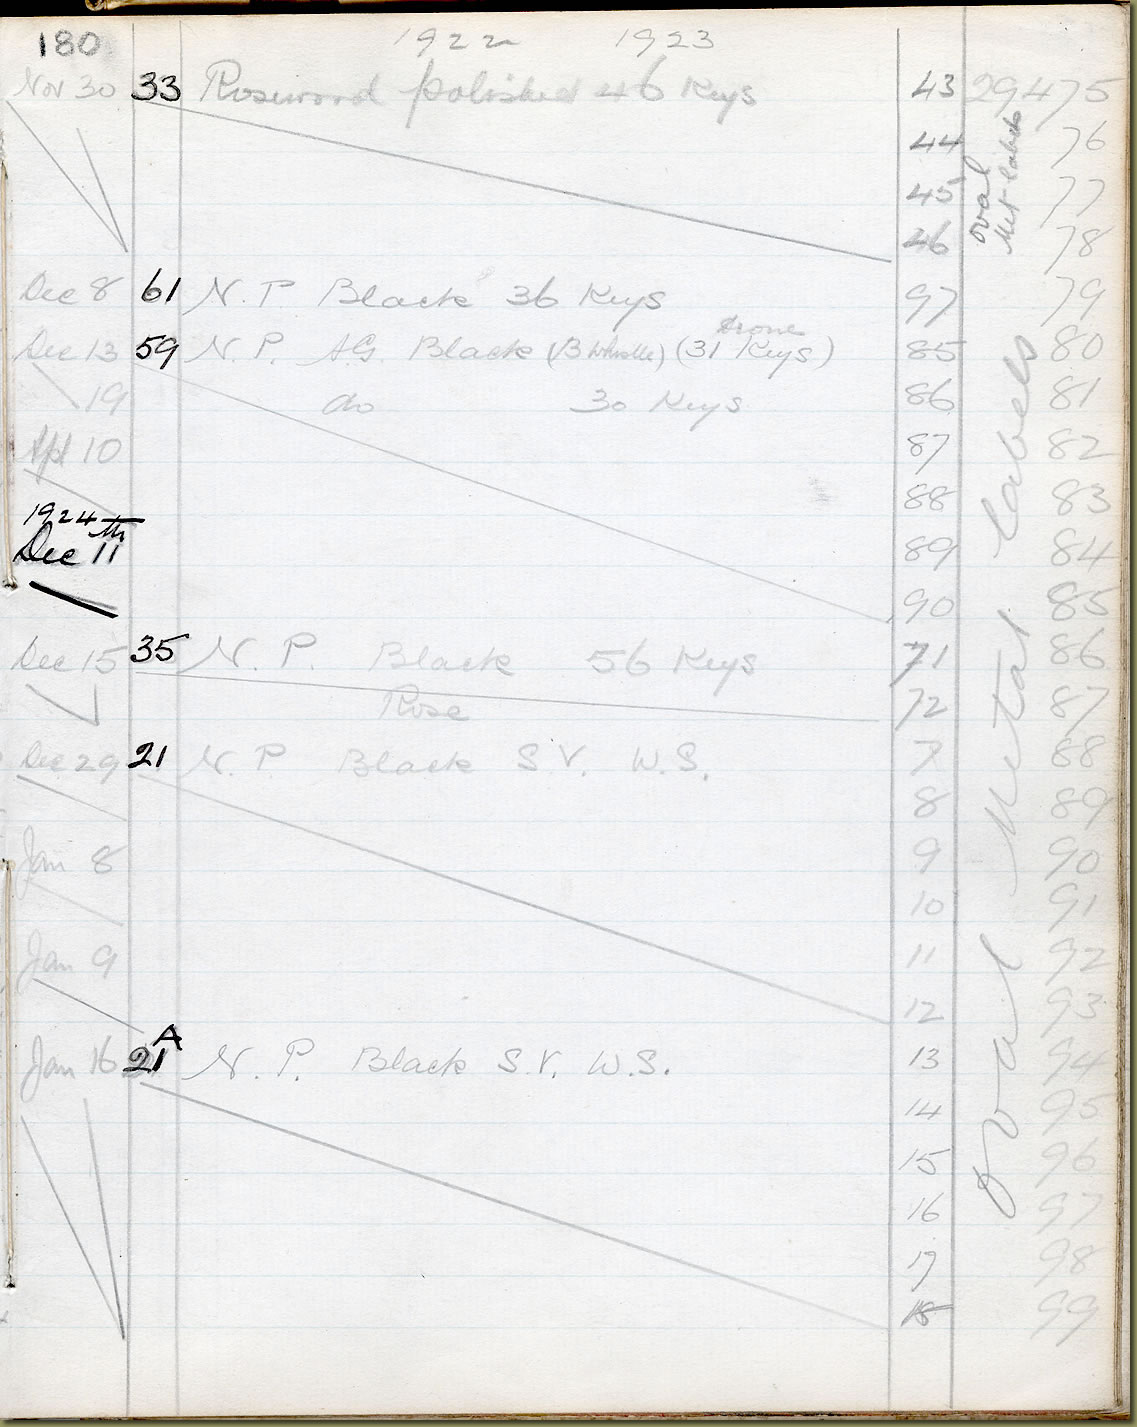 180 1922 1923
Nov 30 33 Rosewood polished 46 Keys 43 29475
44 76
45 77
46 78
oval
Met labels
Dec 8 61 N. P Black 36 Keys 97 79
Drone
Dec 13 59 N. P. A.G. Black (B Whistle) (31 Keys) 85 80
19 do 30 Keys 86 81
Apl 10 87 82
88 83
1924
Dec 11th 89 84
90 85
Dec 15 35 N. P. Black 56 Keys 71 86
Rose 72 87
Dec 29 21 N. P. Black S.V. W.S. 7 88
8 89
Jan 8 9 90
10 91
Jan 9 11 92
12 93
A
Jan 16 21 N. P. Black S.V. W.S. 13 94
14 95
15 96
16 97
17 98
18 99
Oval Metal labels